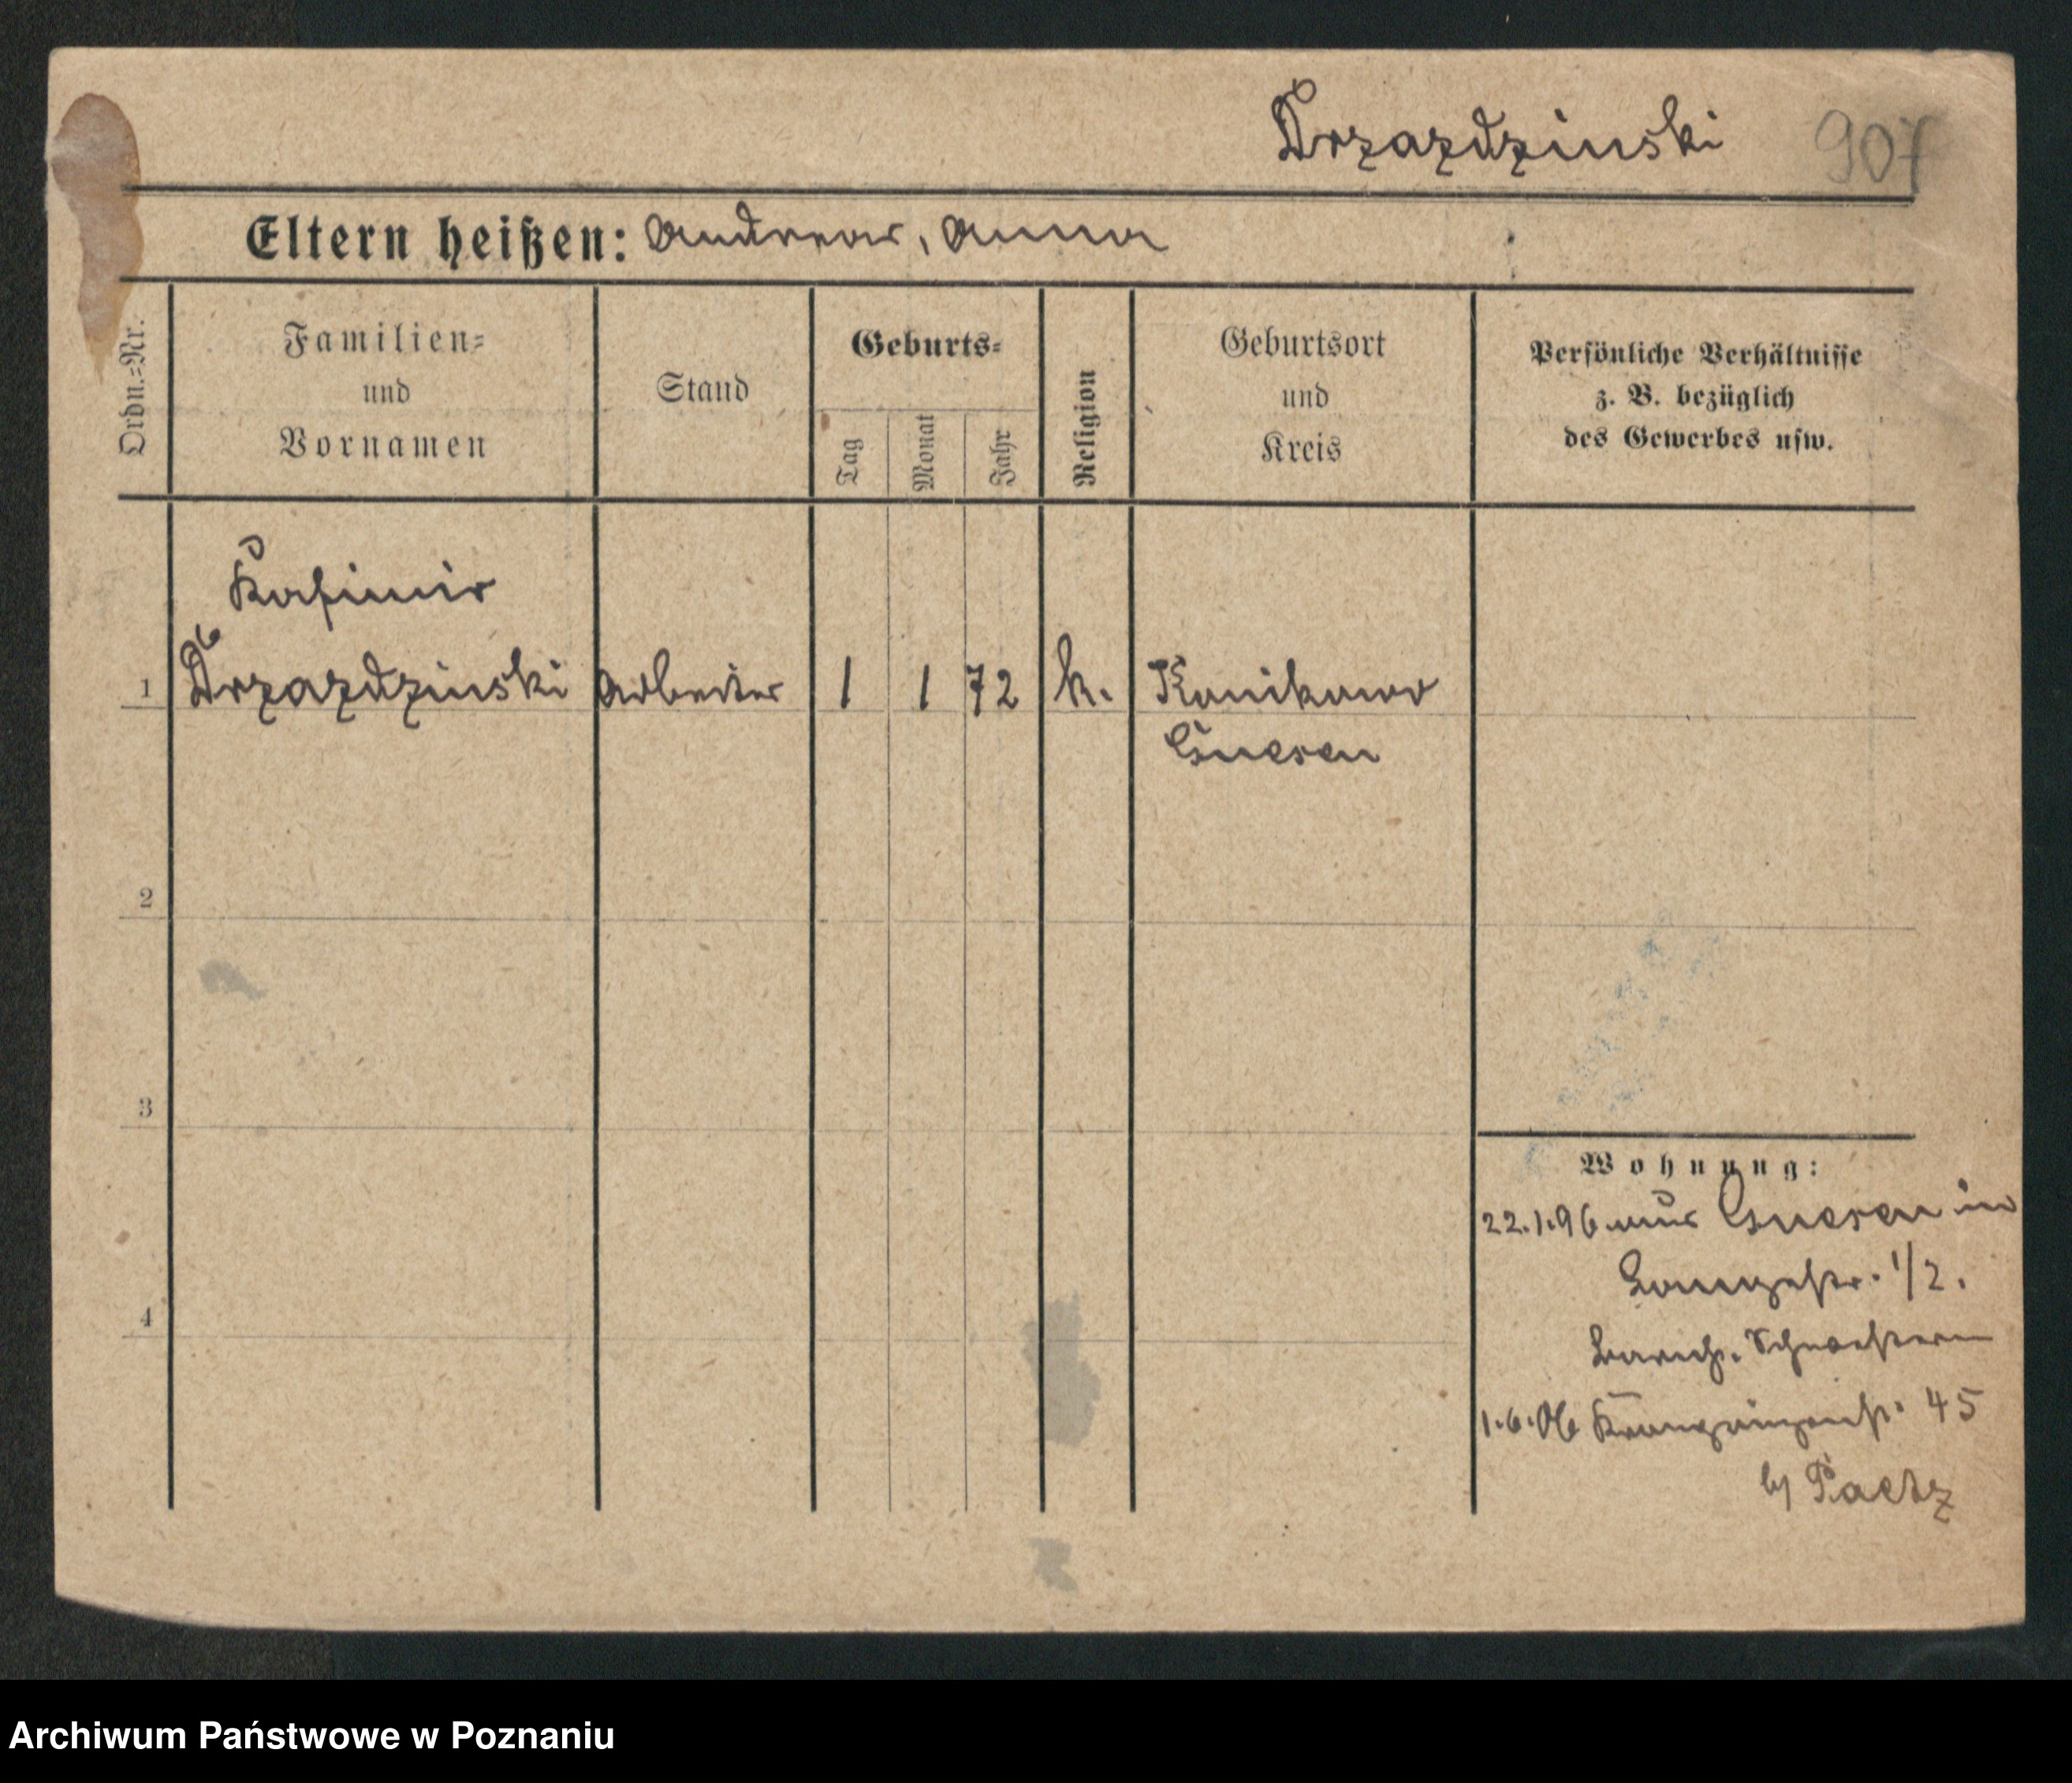 Drzazdzinski 907
Eltern heißen: Andreas, Anna
Ordn.=Nr.
Familien=
und
Vornamen
Stand
Geburts=
Tag
Monat
Jahr
Religion
Geburtsort
und
Kreis
Persönliche Verhältnisse
z. B. bezüglich
des Gewerbes usw.
Kasimir
1 Drzazdzinski Arbeiter 1 1 72 k. Konikowo
Gnesen
2
3
4
Wohnung:
22.1.96 aus Gnesen in
Langestr. 1/2.
Barmh. Schwestern
1.6.06 45
b/ Paetz
Archiwum Państwowe w Poznaniu